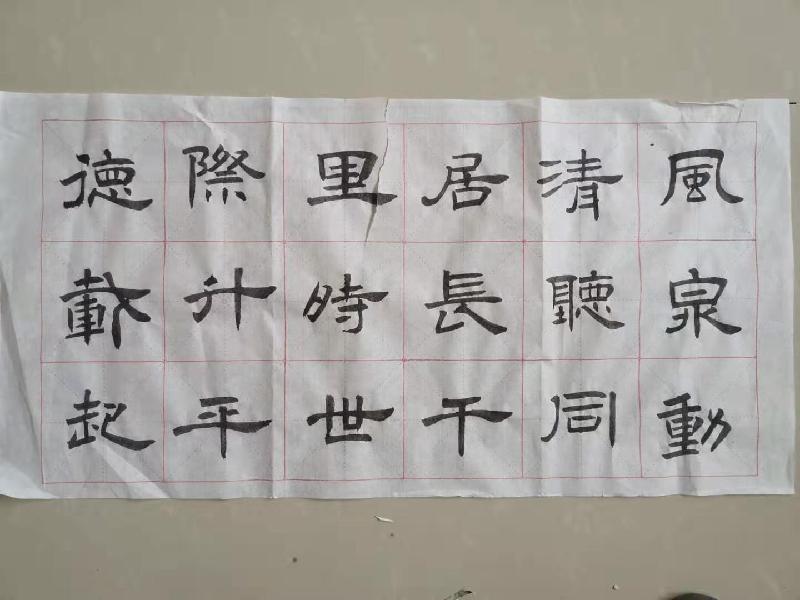 風泉動
清聽同
居長干
里時世
際升平
德載起